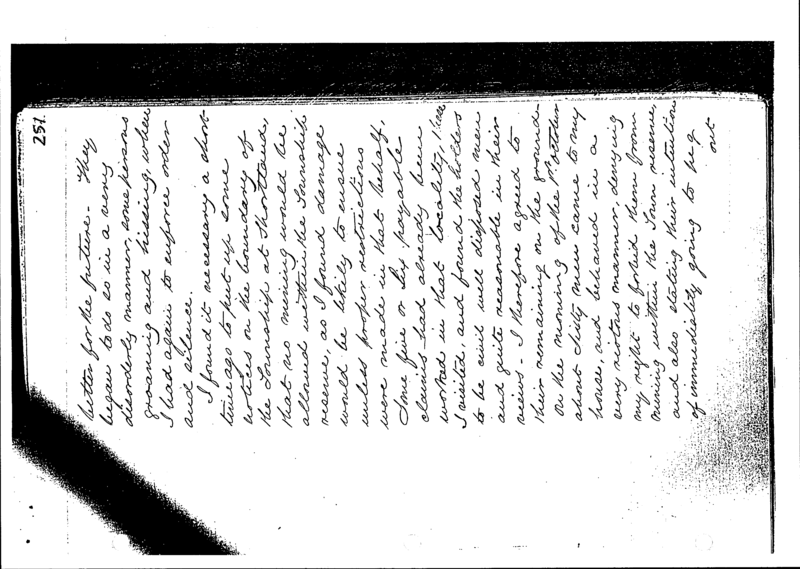 251.
better for the future. They
began to do so in a very
disorderly manner, some persons
groaning and hissing, when
I had again to enforce order
and silence.
I found it necessary a short
time ago to put up some
notices on the boundary of
the Township at Shortland,
that no mining would be
allowed within the Township
reserve, as I found damage
would be likely to ensue
unless proper restrictions
were made in that behalf,
Some five or six payable
claims had already been
worked in that locality, these
I visited, and found the holders
to be civil well disposed men
and quite reasonable in their
views - I therefore agreed to
their remaining on the ground.
On the morning of the 1st October
about sixty men came to my
house, and behaved in a
very riotous manner, denying
my right to forbid them from
mining within the Town reserve,
and also stating their intention
of immediately going to dig
out